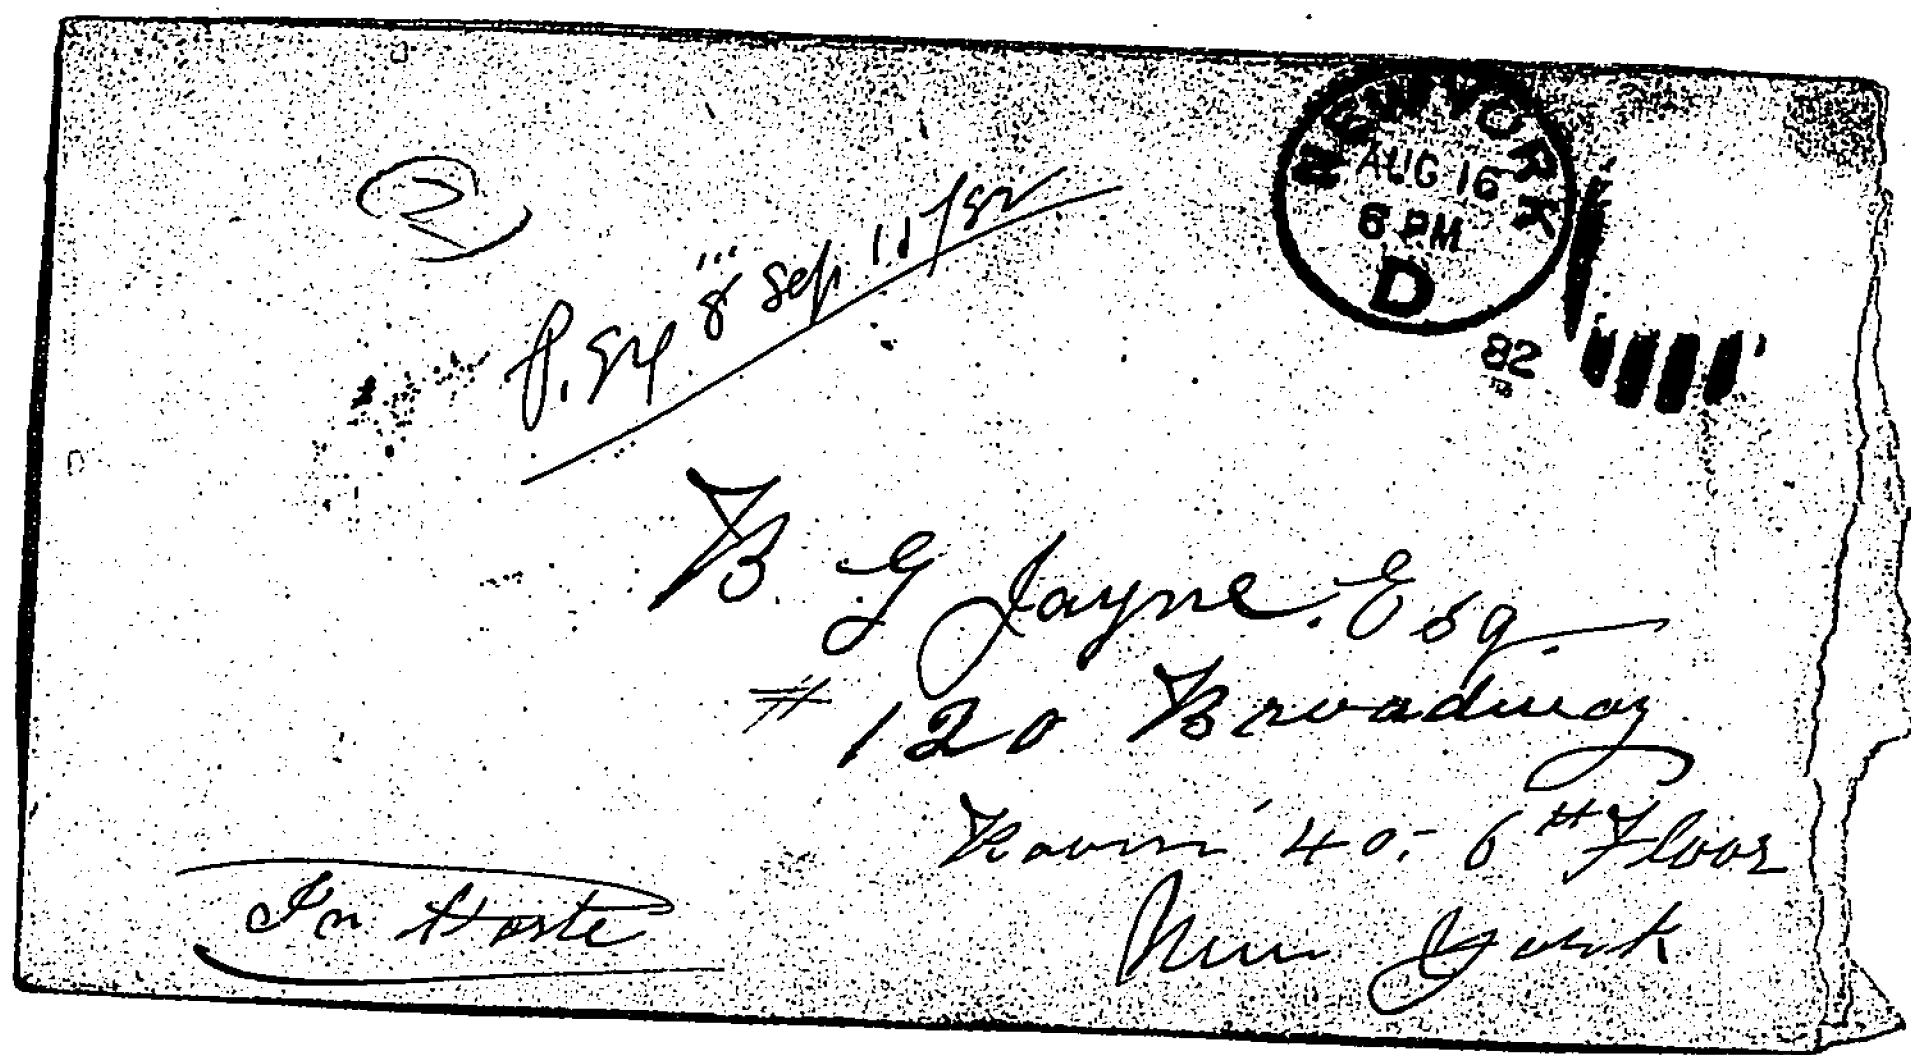 NEW YORK
AUG 16
6 PM
D
82
2
Sep 11/82
B G Jayne. Esq.
# 120 Broadway
Room 40. 6th Floor
New York
In Haste